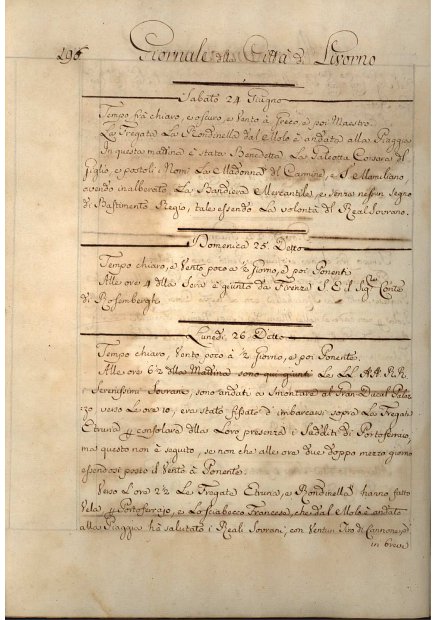 196
Giornale della Città di Livorno
Sabato 24 Giugno
Tempo frà chiaro, e oscuro, e Vento à Greco, e poi Maestro.
La Fregata La Rondinella dal Molo è andata alla Piaggia
In questa mattina è stata Benedetta La Galeotta Corsara del
Giglio, e postoli i Nomi La Madonna del Carmine, e S. Mamiliano
avendo inalberato La Bandiera Mercantile, e senza nessun segno
di Bastimento Regio, tale essendo La volontà del Real Sovrano.
Domenica 25. Detto
Tempo chiaro, e Vento poco a ½ Giorno, e poi Ponente
Alle ore 4 della Sera è giunto da Firenze S. E. il Sigr. Conte
di Rosembergh.
Lunedì 26. Detto
Tempo chiaro, Vento poco à ½ Giorno, e poi Ponente.
Alle ore 6½ della Mattina sono qui giunti Le LL. AA. RR.
i Serenissimi Sovrani, sono andati a smontare al Gran Ducal Palaz-
zo, verso Le ore 10, era stato fissato d'imbarcarsi sopra La Fregata
Etruria p consolare della Loro presenza i Sudditi di Portoferraio,
ma questo non è seguito, se non che alle ore due doppo mezzo giorno
essendosi posto il Vento à Ponente.
Verso L'ore 2½ Le Fregate Etruria, e Rondinella hanno fatto
Vela p Portoferrajo, e Lo Sciabecco Francese, che dal Molo è andato
alla Piaggia hà salutato i Reali Sovrani; con Ventun Tiro di Cannone,
in breve